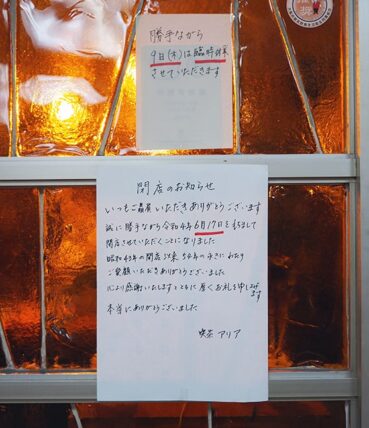 勝手ながら
9日(木)は臨時休業
させていただきます
閉店のお知らせ
いつもご贔屓いただきありがとうございます
誠に勝手ながら令和4年6月17日をもちまして
閉店させていただくことになりました
昭和43年の開店以来54年の永きにわたり
ご愛顧いただきありがとうございました
心より感謝いたしますとともに厚くお礼を申し上げます
本当にありがとうございました
喫茶 アリア